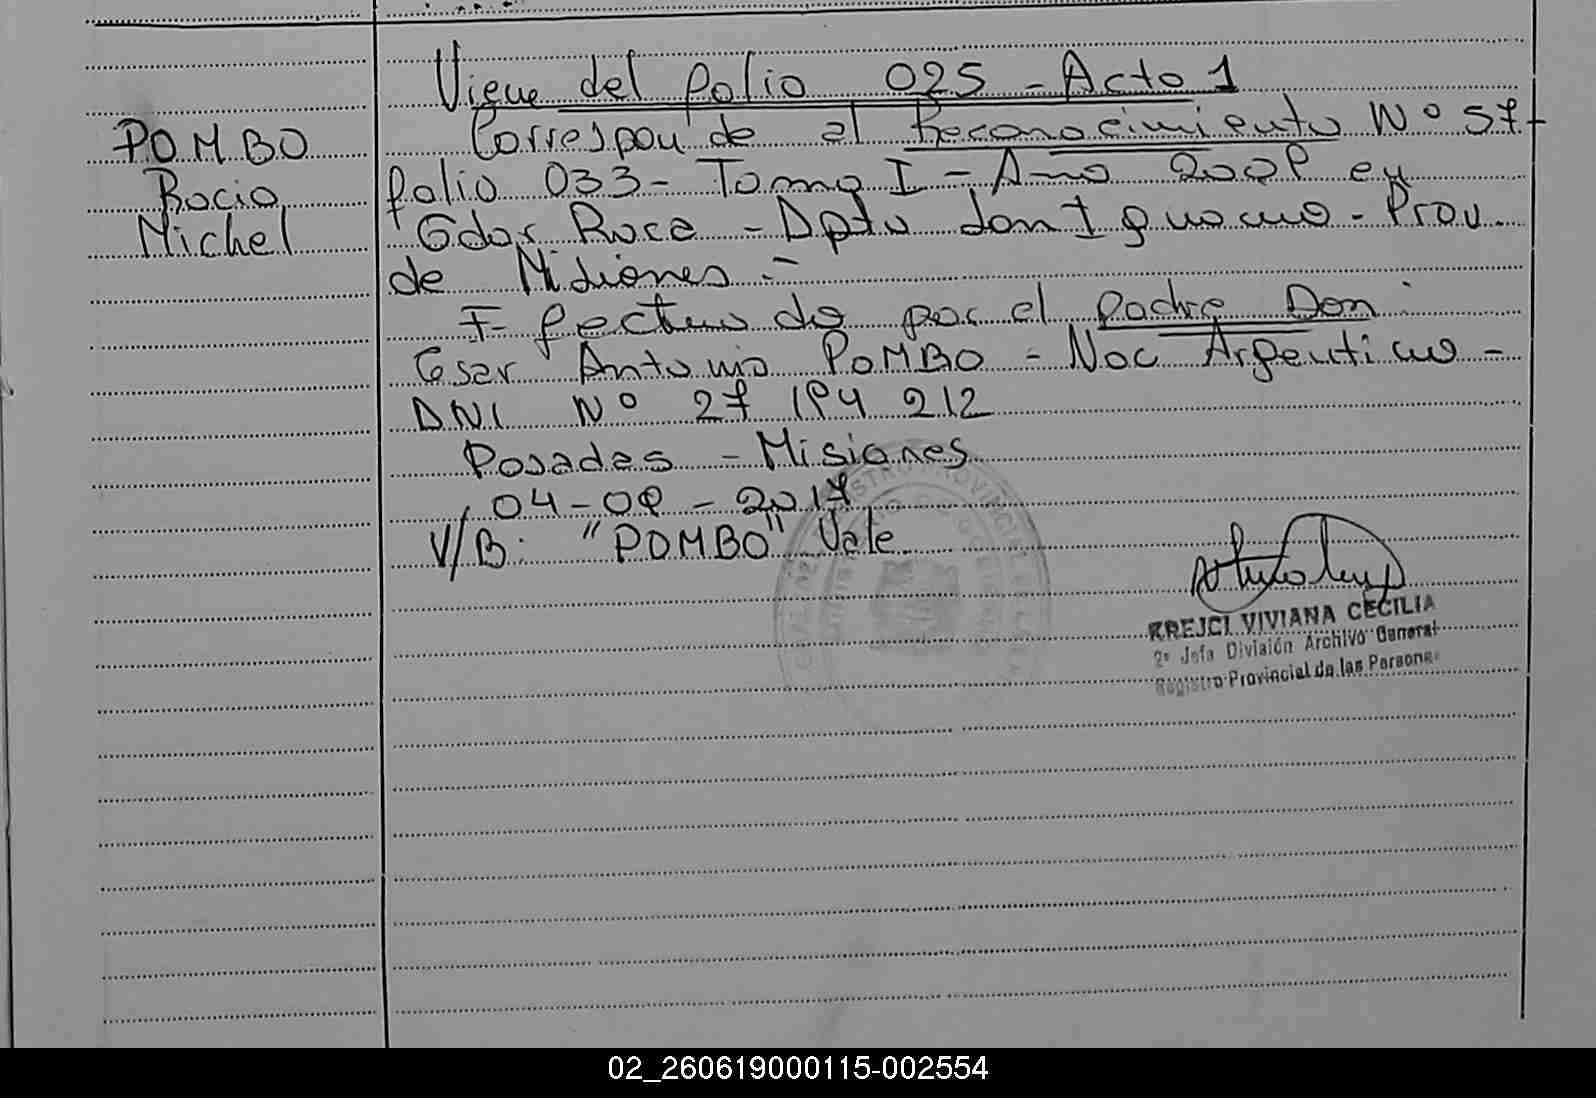 Viene del folio 025 - Acto 1
POMBO
Rocio
Michel
Corresponde al Reconocimiento Nº 57-
folio 033 - Tomo I - Año 2008 en
Gdor Roca - Dpto San Ignacio - Prov.
de Misiones =
Efectuado por el Padre Don:
Cesar Antonio POMBO - Nac Argentino -
DNI Nº 27 184 212
Posadas - Misiones
04-08-2017
V/B: "POMBO" Vale
KREJCI VIVIANA CECILIA
2º Jefa División Archivo General
Registro Provincial de las Personas
02_260619000115-002554